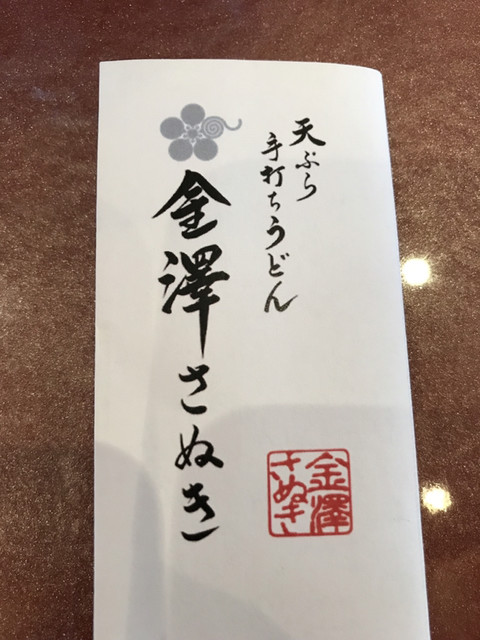 天ぷら
手打ちうどん
金澤さぬき
金澤
さぬき